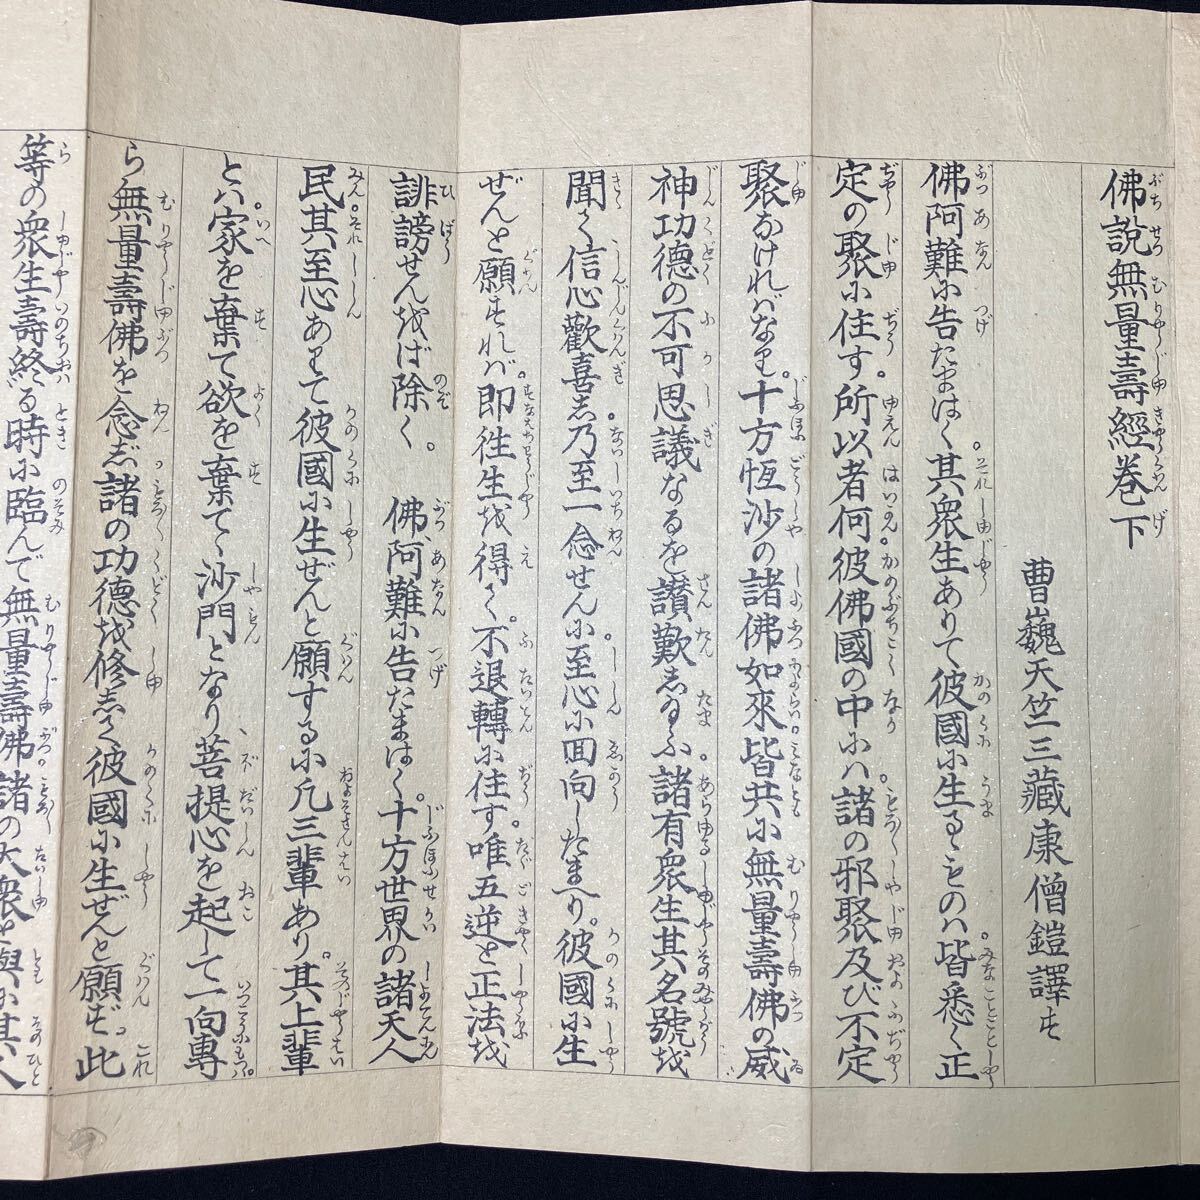 佛說無量壽經卷下
曹巍天竺三藏康僧鎧譯す
佛阿難に告たまはく其衆生ありて彼國に生るものハ皆悉く正
定の聚に住す。所以者何彼佛國の中にハ諸の邪聚及び不定
聚なけれバなり。十方恆沙の諸佛如來皆共に無量壽佛の威
神功德の不可思議なるを讃歎したまふ諸有衆生其名號を
聞く信心歡喜し乃至一念せんに至心に回向したまへり。彼國に生
ぜんと願ずれバ即往生を得く。不退轉に住す。唯五逆と正法を
誹謗せんをば除く。 佛阿難に告たまはく。十方世界の諸天人
民其至心ありて彼國に生ぜんと願するに凡三輩あり。其上輩
とハ家を棄て欲を棄てゝ沙門となり菩提心を起して一向專
ら無量壽佛を念じ諸の功德を修しく彼國に生ぜんと願ず。此
等の衆生壽終る時に臨んで無量壽佛諸の大衆と與に其人